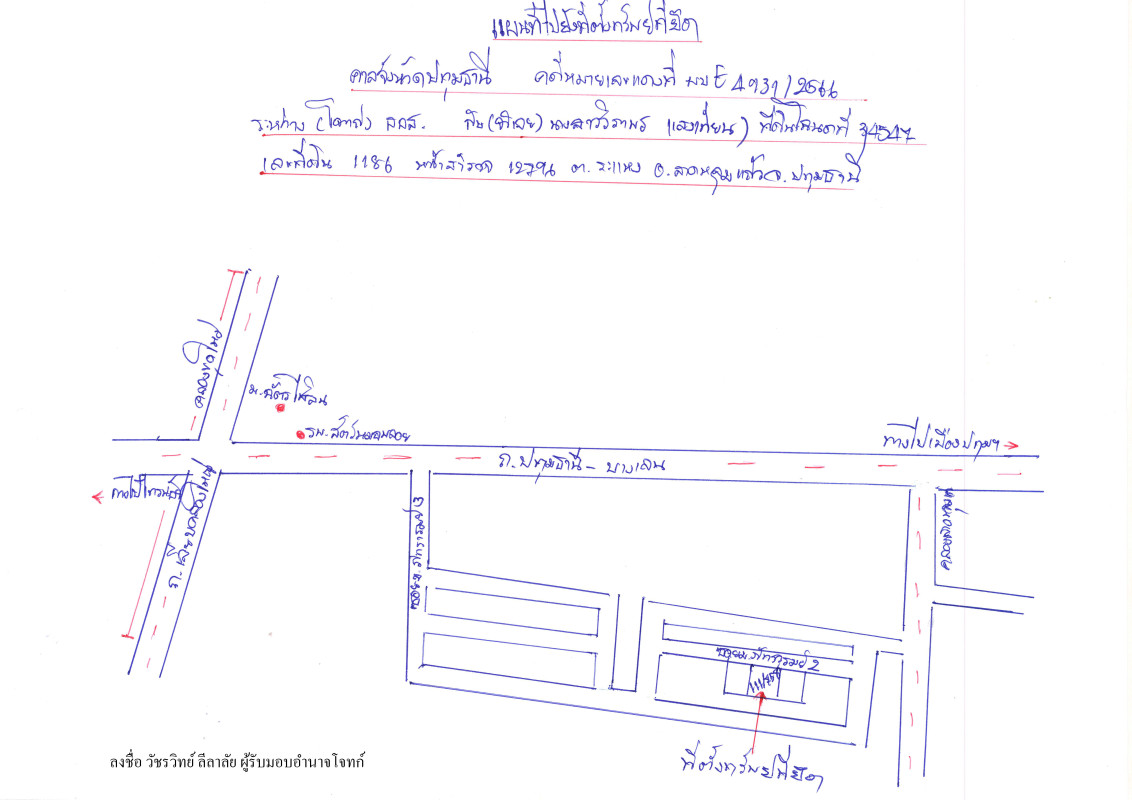 แผนที่ไปยังที่ตั้งทรัพย์ที่ยึด
ศาลจังหวัดปทุมธานี คดีหมายเลขแดงที่ ผบ E 4931/2566
ระหว่าง (โจทก์) ธอส. กับ (จำเลย) นางสาววิราพร ที่ดินโฉนดที่ 34547
เลขที่ดิน 1186 หน้าสำรวจ ต. ระแหง อ. ลาดหลุมแก้ว จ. ปทุมธานี
คลองขุดใหม่
ม. ฉัตรไพลิน
รพ. สัตว์
ทางไปเมืองปทุมฯ
ถ. ปทุมธานี - บางเลน
ทางไปไทรน้อย
ถ. เลียบคลองใหม่
ซอย ม. ภัทรารมย์ 3
ซอย ม. ภัทรารมย์ 2
ที่ตั้งทรัพย์ที่ยึด
ลงชื่อ วัชรวิทย์ ลีลาลัย ผู้รับมอบอำนาจโจทก์